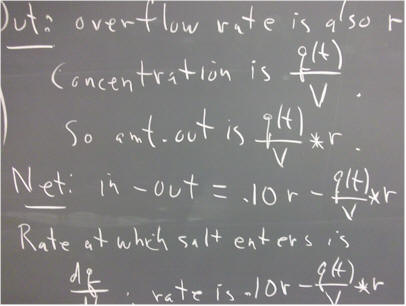 Out: overflow rate is also r
Concentration is q(t)/V.
So amt. out is q(t)/V *r.
Net: in - out = .10 r - q(t)/V *r
Rate at which salt enters is
rate is .10r - q(t)/V *r